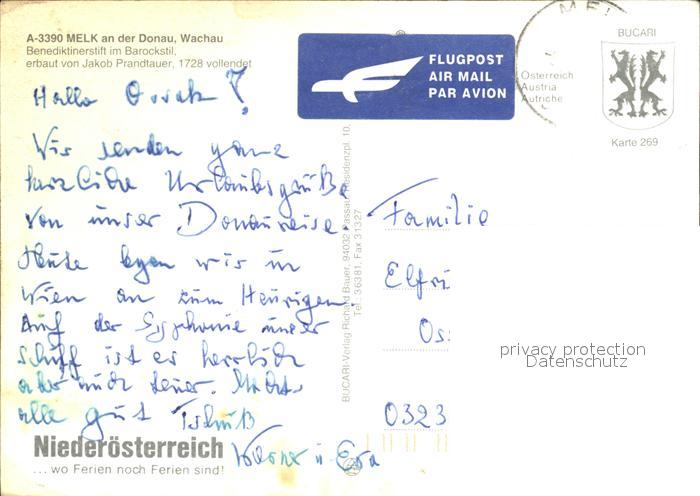 A-3390 MELK an der Donau, Wachau
Benediktinerstift im Barockstil,
erbaut von Jakob Prandtauer, 1728 vollendet
FLUGPOST
AIR MAIL
PAR AVION
MEL
Österreich
Austria
Autriche
BUCARI
Karte 269
Hallo
Wir senden ganz
herzliche Urlaubsgrüße
von unser Donaureise.
Heute legen wir in
Wien an zum Heurigen.
Auf der Symphonie unser
Schiff ist es herrlich
aber auch teuer. Macht
alle gut Tschüß
Werner u. Eva
Niederösterreich
... wo Ferien noch Ferien sind!
BUCARI-Verlag Richard Bauer, 94032 Passau, Residenzpl. 10,
Tel. 36381, Fax 31327
Familie
Elfri
Os
0323
privacy protection
Datenschutz